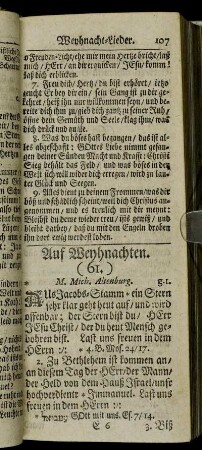 Weyhnacht-Lieder. 107
o Freuden-Licht, ehe mir mein Hertze bricht, laß
mich, HErr, an dir erquicken, JEsu komm!
laß dich erblicken.
7. Freu dich, Hertz, du bist erhöret, itzo
zeucht er bey dir ein, sein Gang ist zu dir ge-
kehret, heiß ihn nur willkommen seyn, und be-
reite dich ihm zu, gieb dich gantz zu seiner Ruh,
öffne dein Gemüth und Seele, klag ihm, was
dich drückt und
8. Was du hast begangen, das ist al-
les abgeschafft: GOttes Liebe nimmt gefan-
gen deiner Sünden Macht und Krafft: Christi
Sieg behält das Feld, und was böses in der
Welt sich wird wider dich erregen, wird zu lau-
ter Glück und Seegen.
9. Alles dient zu deinem Frommen, was dir
böß und schädlich scheint, weil dich Christus an-
genommen, und es treulich mit dir meynt:
Bleibst du deme wieder treu, ists gewiß, und
bleibt darbey, daß du mit den Engeln droben
ihn dort ewig werdest loben.
Auf Weyhnachten.
(61.)
M. Mich. Altenburg. g-1.
AUs Jacobs-Stamm ein Stern
sehr klar geht heut auf, und wird
offenbar; der Stern bist du, HErr
JEsu Christ, der du heut Mensch ge-
bohren bist. Last uns freuen in dem
HErrn :,: 4. B. Mos. 24/17.
2. Zu Bethlehem ist kommen an,
an diesem Tag der HErr, der Mann,
der Held von dem Hauß Israel, unser
hochverdienter Immanuel. Last uns
freuen in dem HErrn :,:
GOtt mit uns. Es. 7/14.
E 6 3. Biß